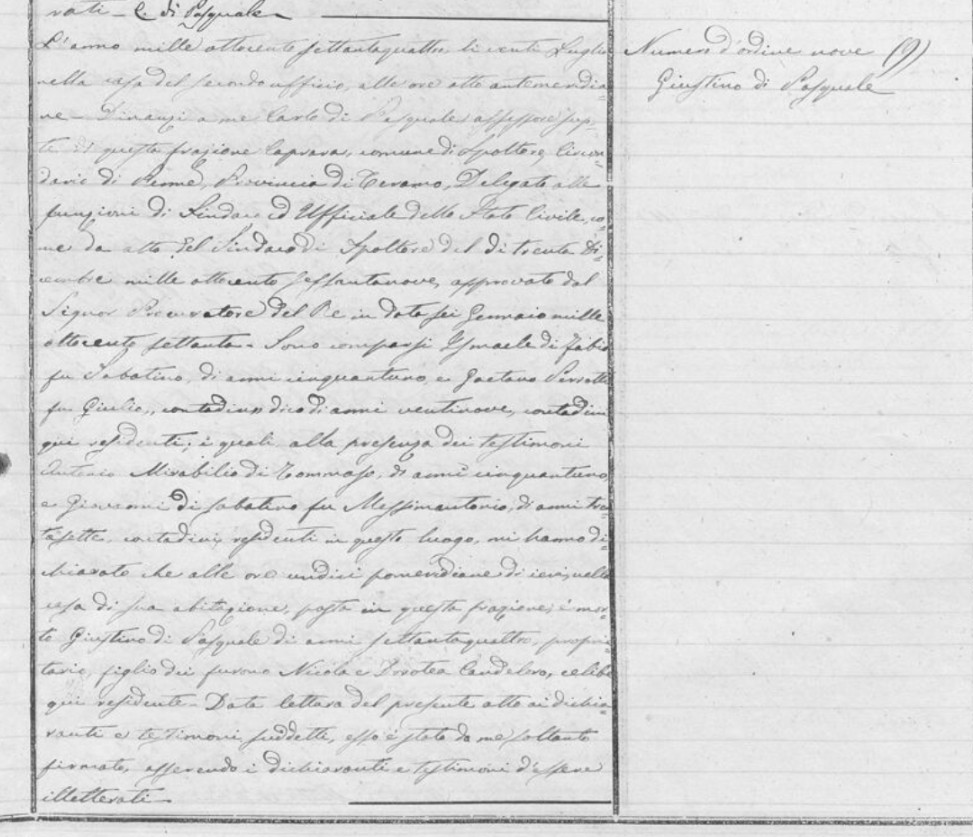 rati - C. di Pasquale
L'anno mille ottocento settantaquattro li venti Luglio
nella casa del secondo ufficio, alle ore otto antemeridia=
ne - Dinanzi a me Carlo di Pasquale assessore sup=
te di questa frazione Caprara, comune di Spoltore, Circon=
dario di Penne, Provincia di Teramo, Delegato alle
funzioni di Sindaco ed Uffiziale dello Stato Civile, co=
me da atto del Sindaco di Spoltore del di trenta Di=
cembre mille ottocento sessantanove, approvato dal
Signor Procuratore del Re in data sei Gennaio mille
ottocento settanta - Sono comparsi Ismaele di Fabio
fu Sabatino, di anni cinquantuno, e Gaetano
fu Giulio, contadino dico di anni ventinove, contadini
qui residenti; i quali alla presenza dei testimoni
Antonio Mirabilio di Tommaso, di anni cinquantuno,
e Giovanni di Sabatino fu Massimantonio, di anni tren=
tasette, contadini, residenti in questo luogo, mi hanno di=
chiarato che alle ore undici pomeridiane di ieri, nella
casa di sua abitazione, posta in questa frazione, è mor=
to Giustino di Pasquale di anni settantaquattro, proprie=
tario, figlio dei furono Nicola e Dorotea Candeloro, celibe
qui residente - Data lettura del presente atto ai dichia=
ranti e testimoni suddetti, esso è stato da me soltanto
firmato, asserendo i dichiaranti e testimoni d'essere
illetterati -
Numero d'ordine nove (9)
Giustino di Pasquale